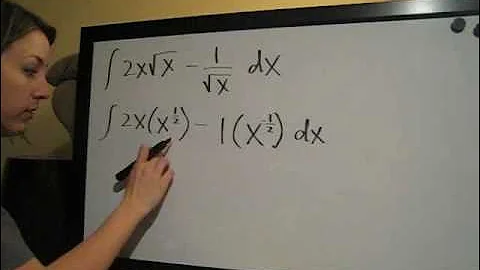 ∫ 2x√x − 1/√x dx
∫ 2x(x^½) − 1(x^-½) dx